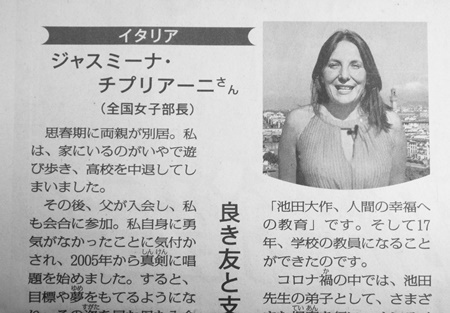 イタリア
ジャスミーナ・
チプリアーニさん
（全国女子部長）
思春期に両親が別居。私
は、家にいるのがいやで遊
び歩き、高校を中退してし
まいました。
その後、父が入会し、私
も会合に参加。私自身に勇
気がなかったことに気付か
され、2005年から真剣に唱
題を始めました。すると、
目標や夢をもてるようにな
良き友と支
「池田大作、人間の幸福へ
の教育」です。そして17
年、学校の教員になること
ができたのです。
コロナ禍の中では、池田
先生の弟子として、さまざ